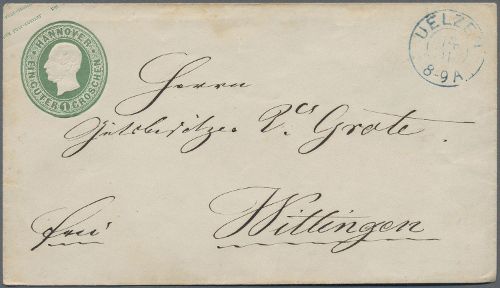 HANNOVER
EIN GUTER 1 GROSCHEN
UELZEN
8-9 A.
Herrn
Gutsbesitzer Grote.
frei
Wittingen